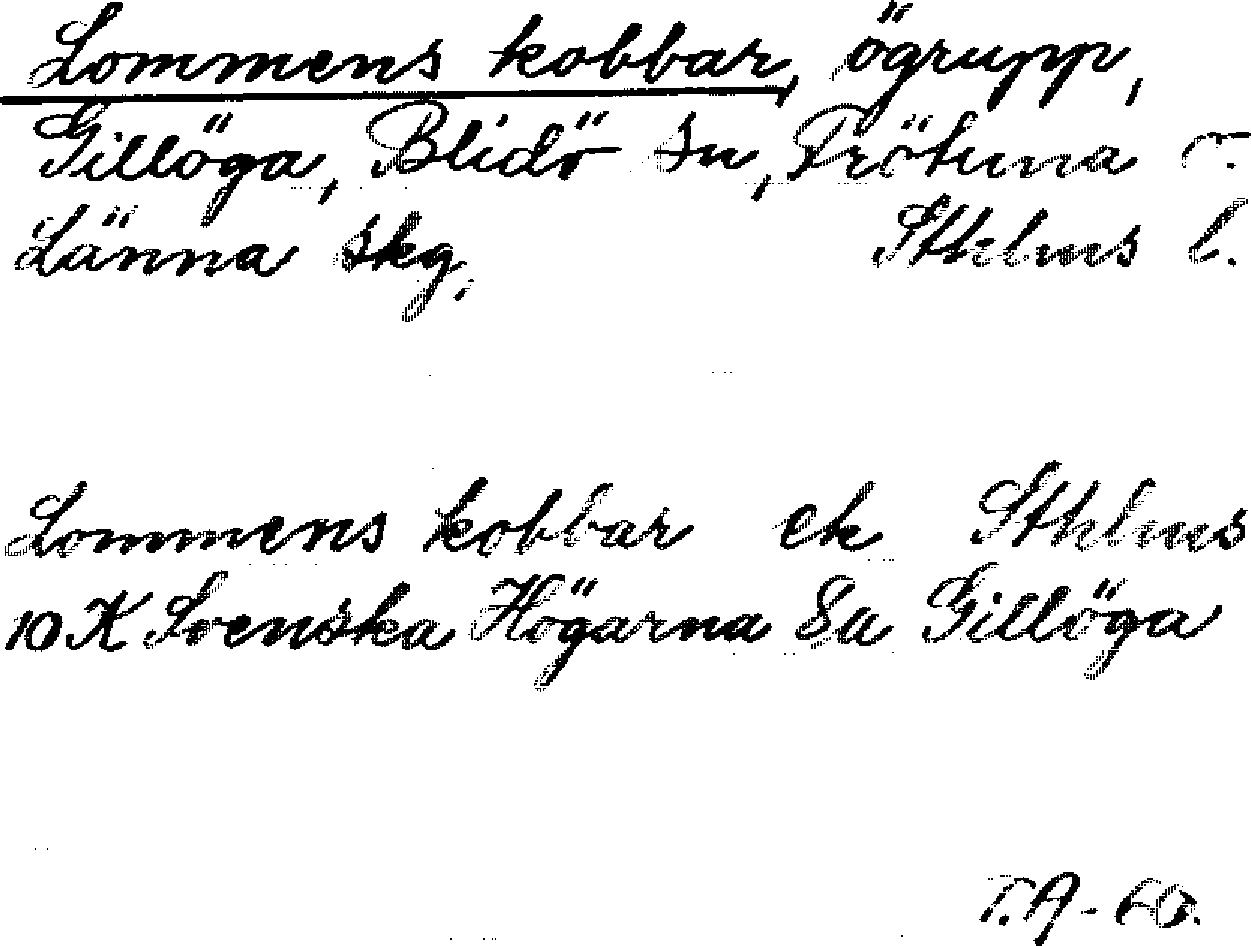 Lommens kobbar, ögrupp,
Gillöga, Blidö sn, Frötuna o.
Länna skg, Sthlms l.
Lommens kobbar ek Sthlms
10 K Svenska Högarna Sa Gillöga
T.A-60.